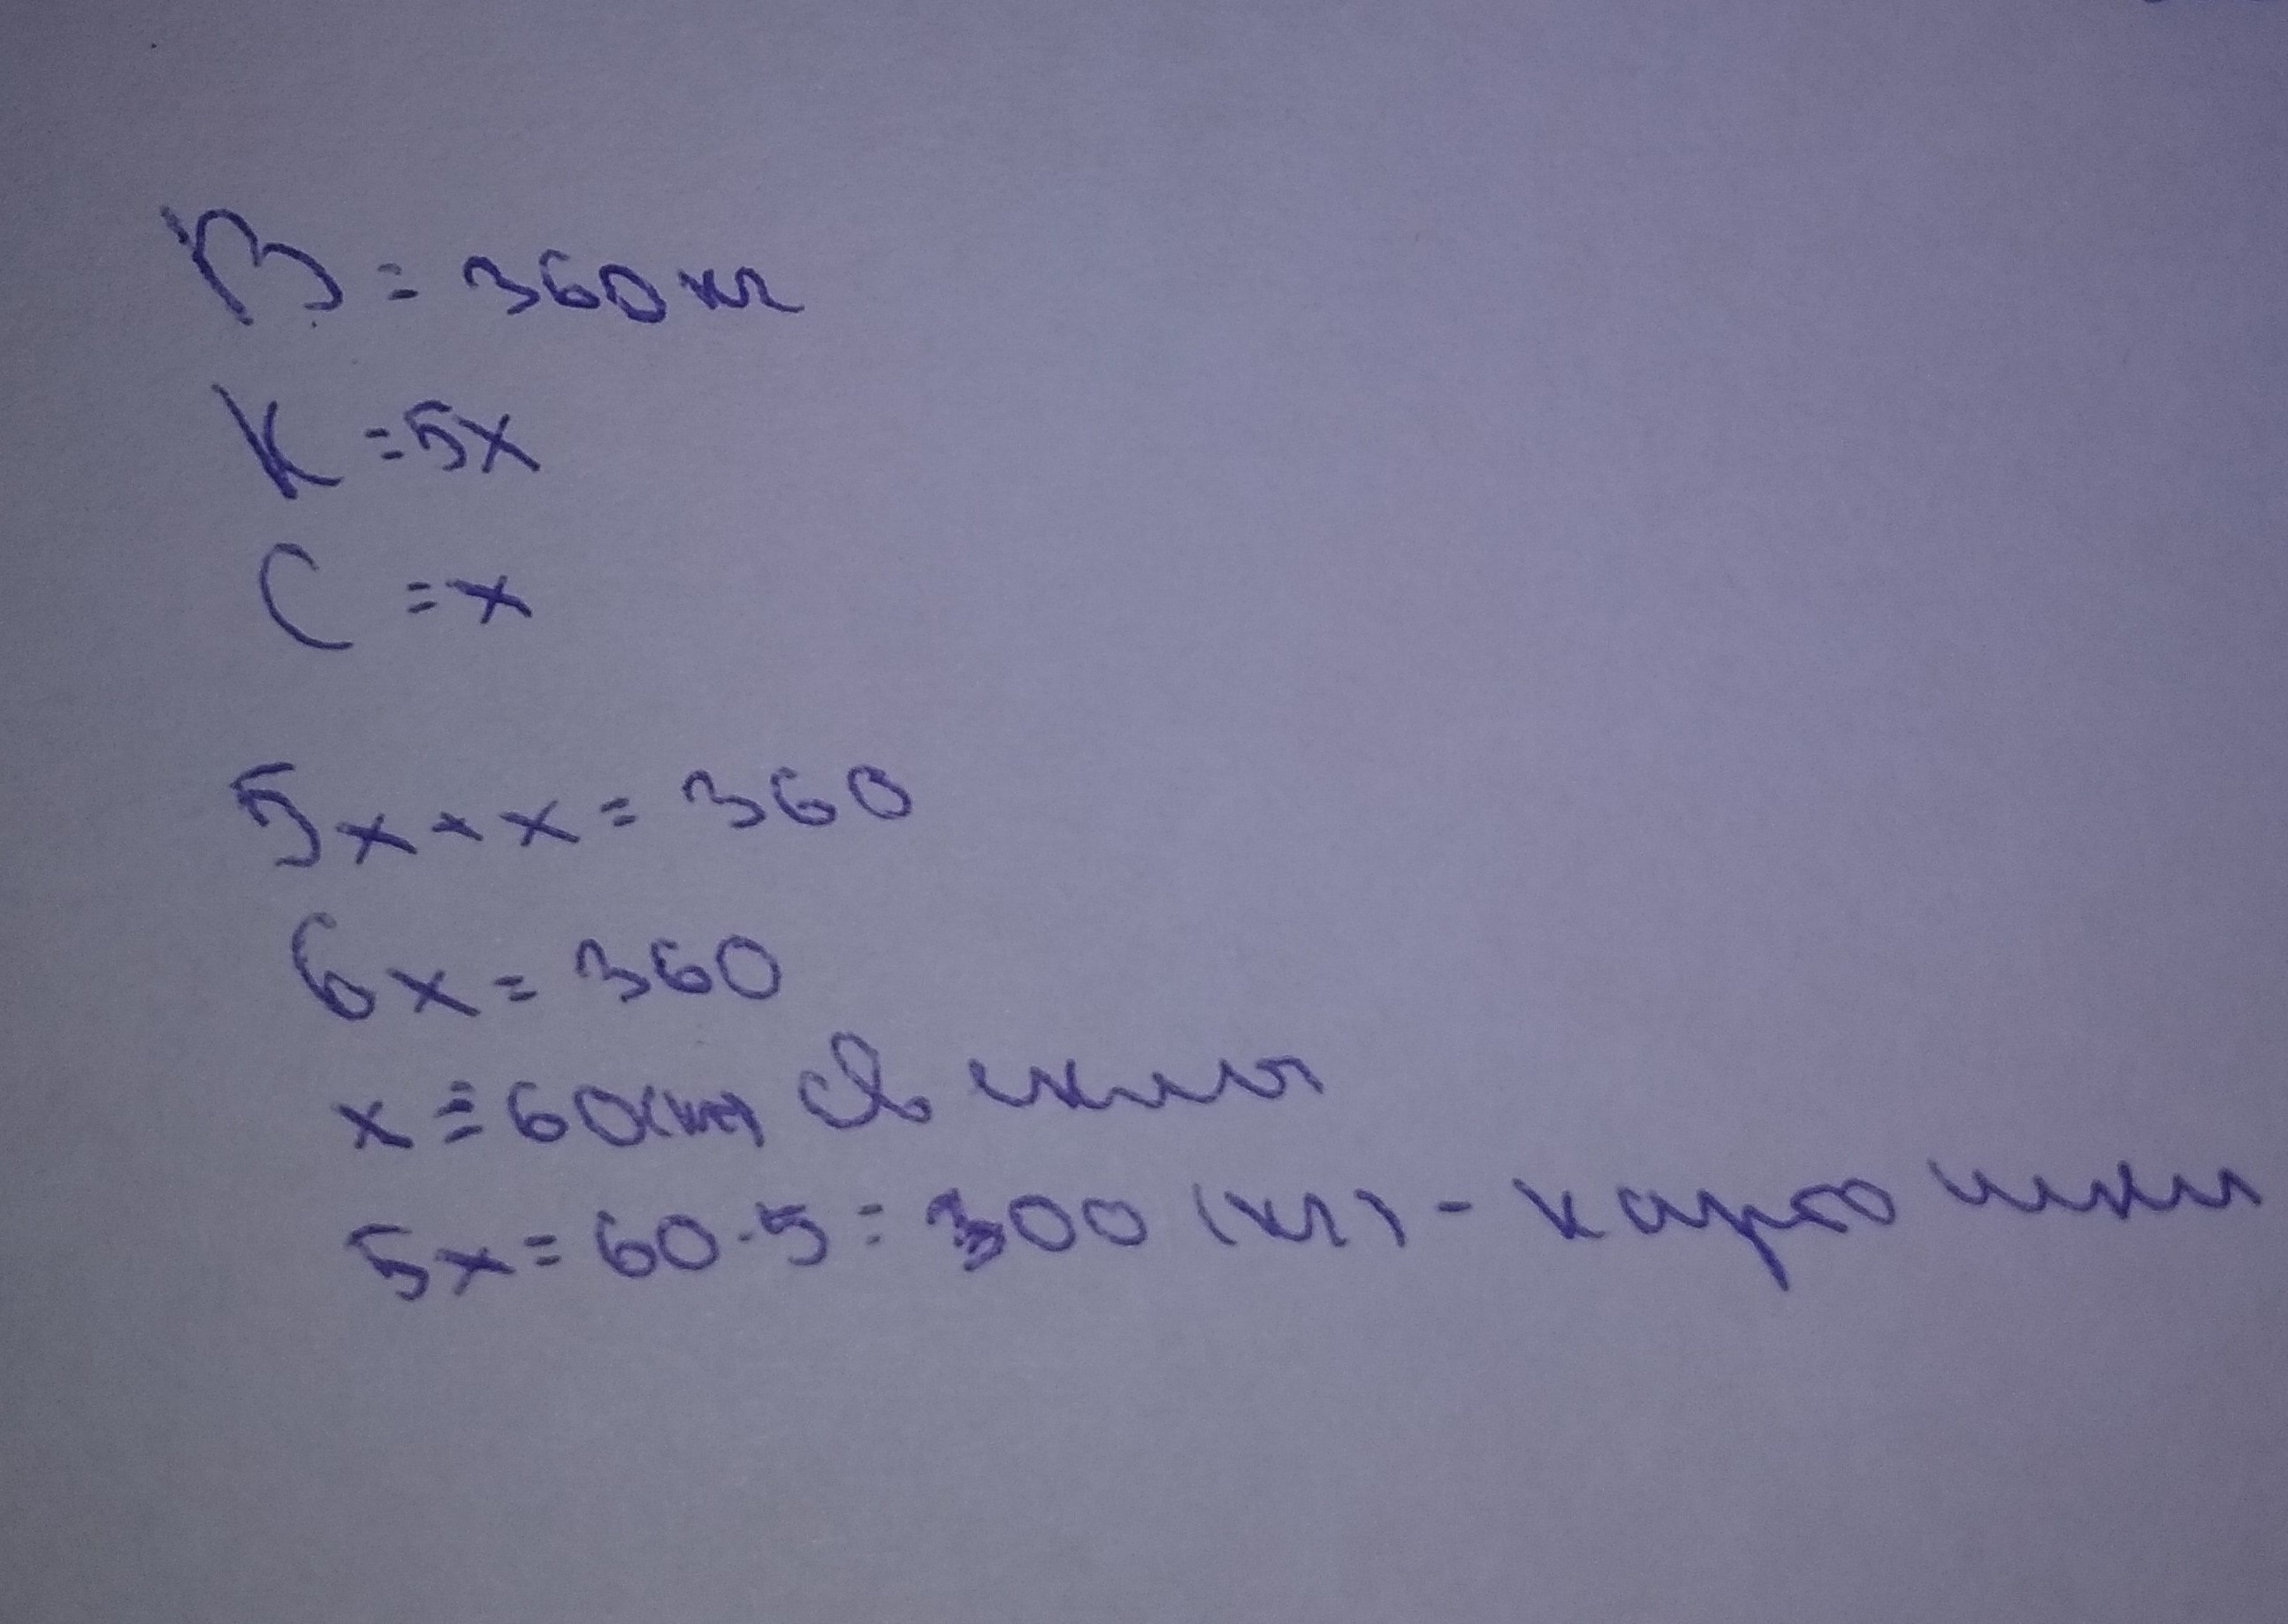 В = 360 кг
К = 5х
С = х
5х + х = 360
6х = 360
х = 60 (кг) свеклы
5х = 60 · 5 = 300 (кг) - картошки